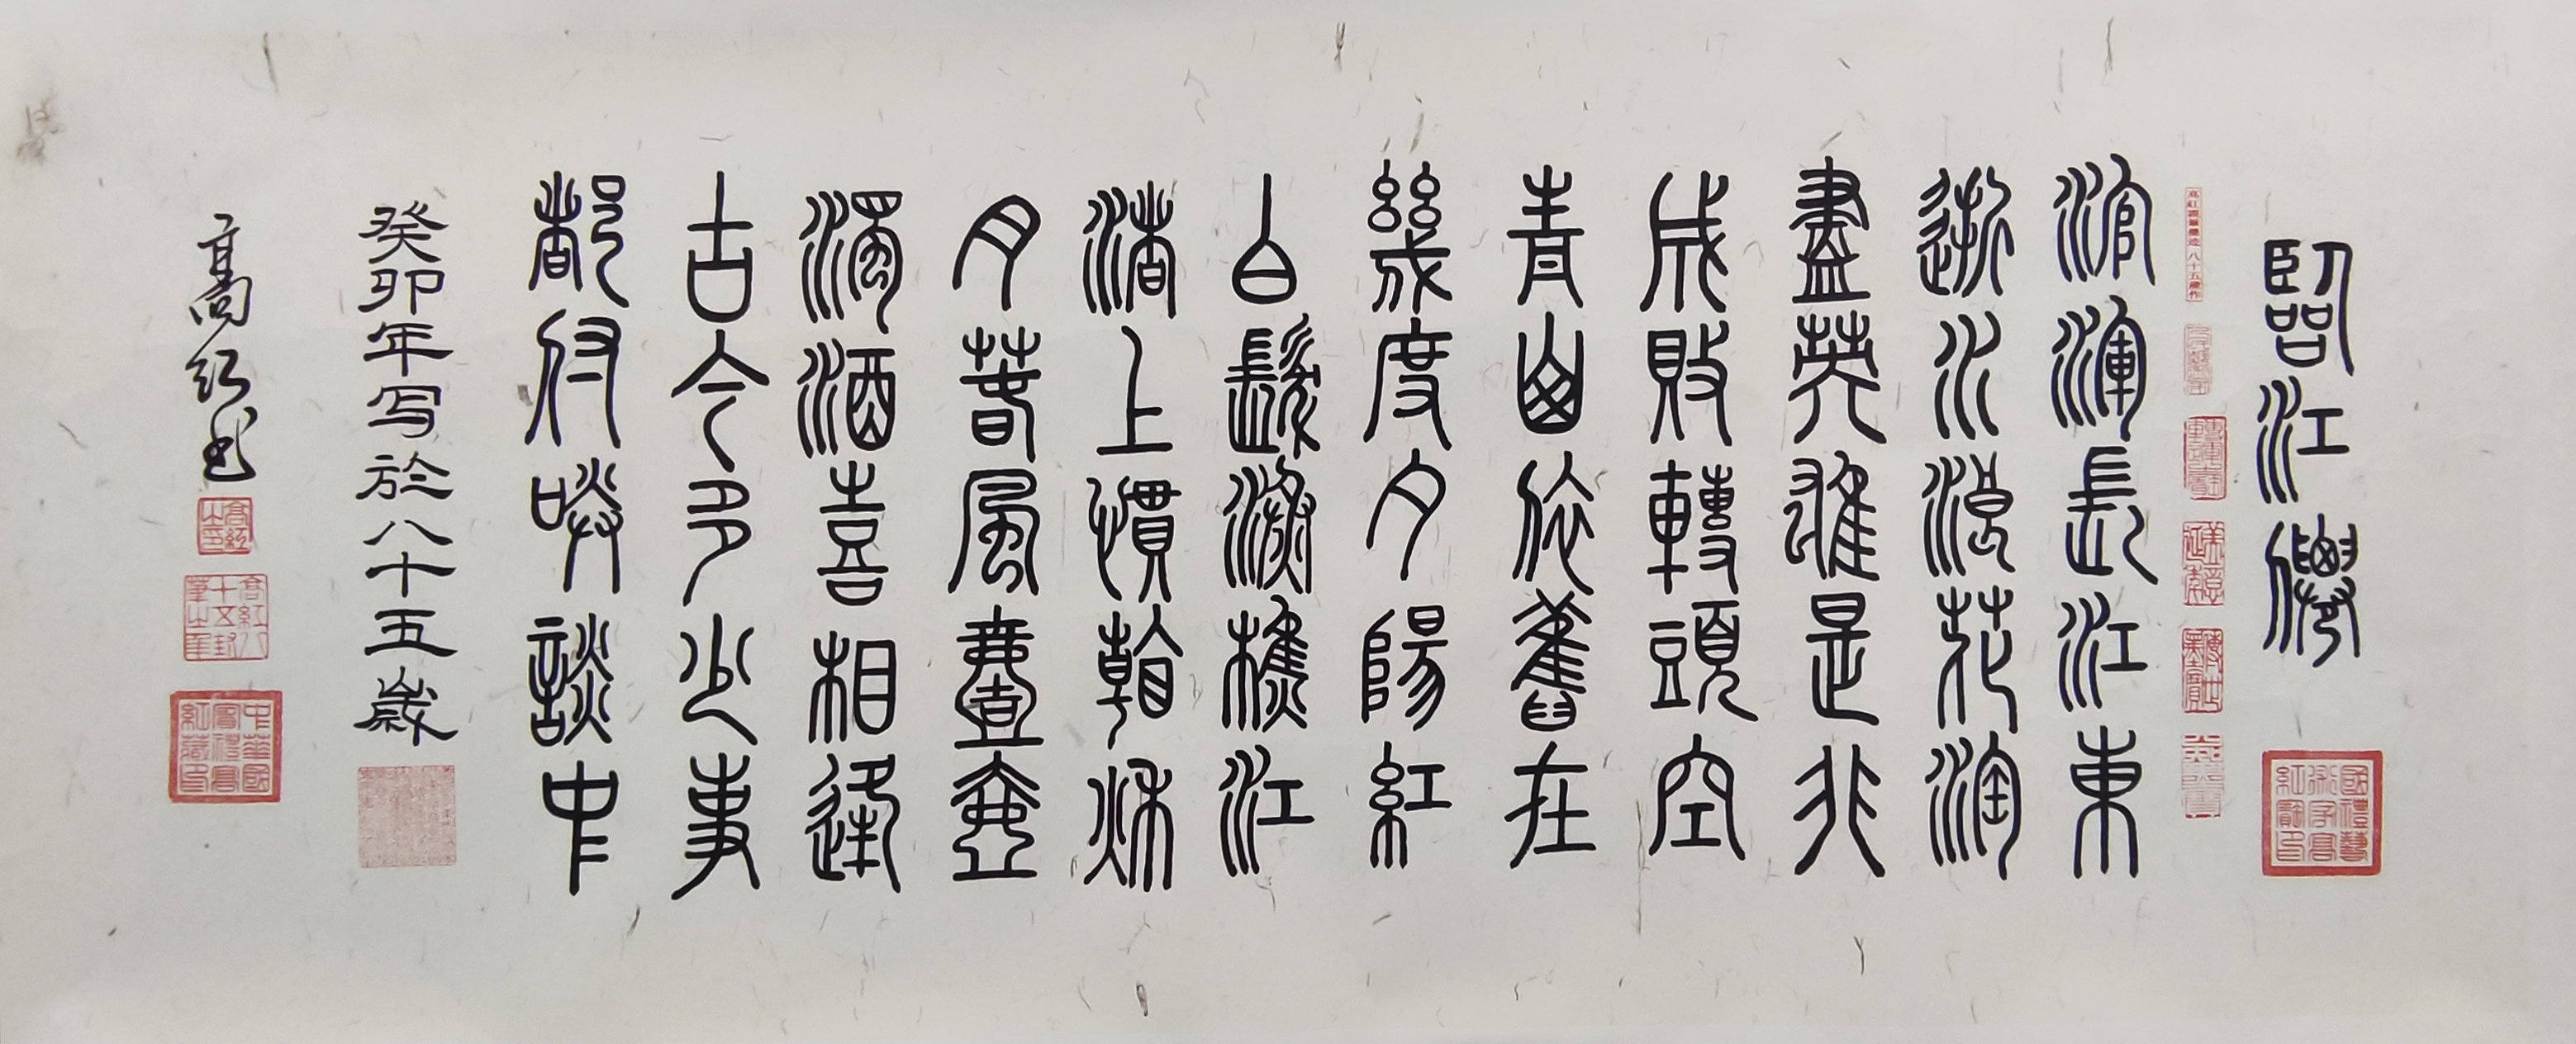 臨江僊
滾渾長江東
逝水浪花淘
盡英雄是非
成敗轉頭空
青山依舊在
幾度夕陽紅
白髮漁樵江
渚上慣看秋
月春風壹壺
濁酒喜相逢
古今多少事
都付笑談中
癸卯年写於八十五歲
高红书